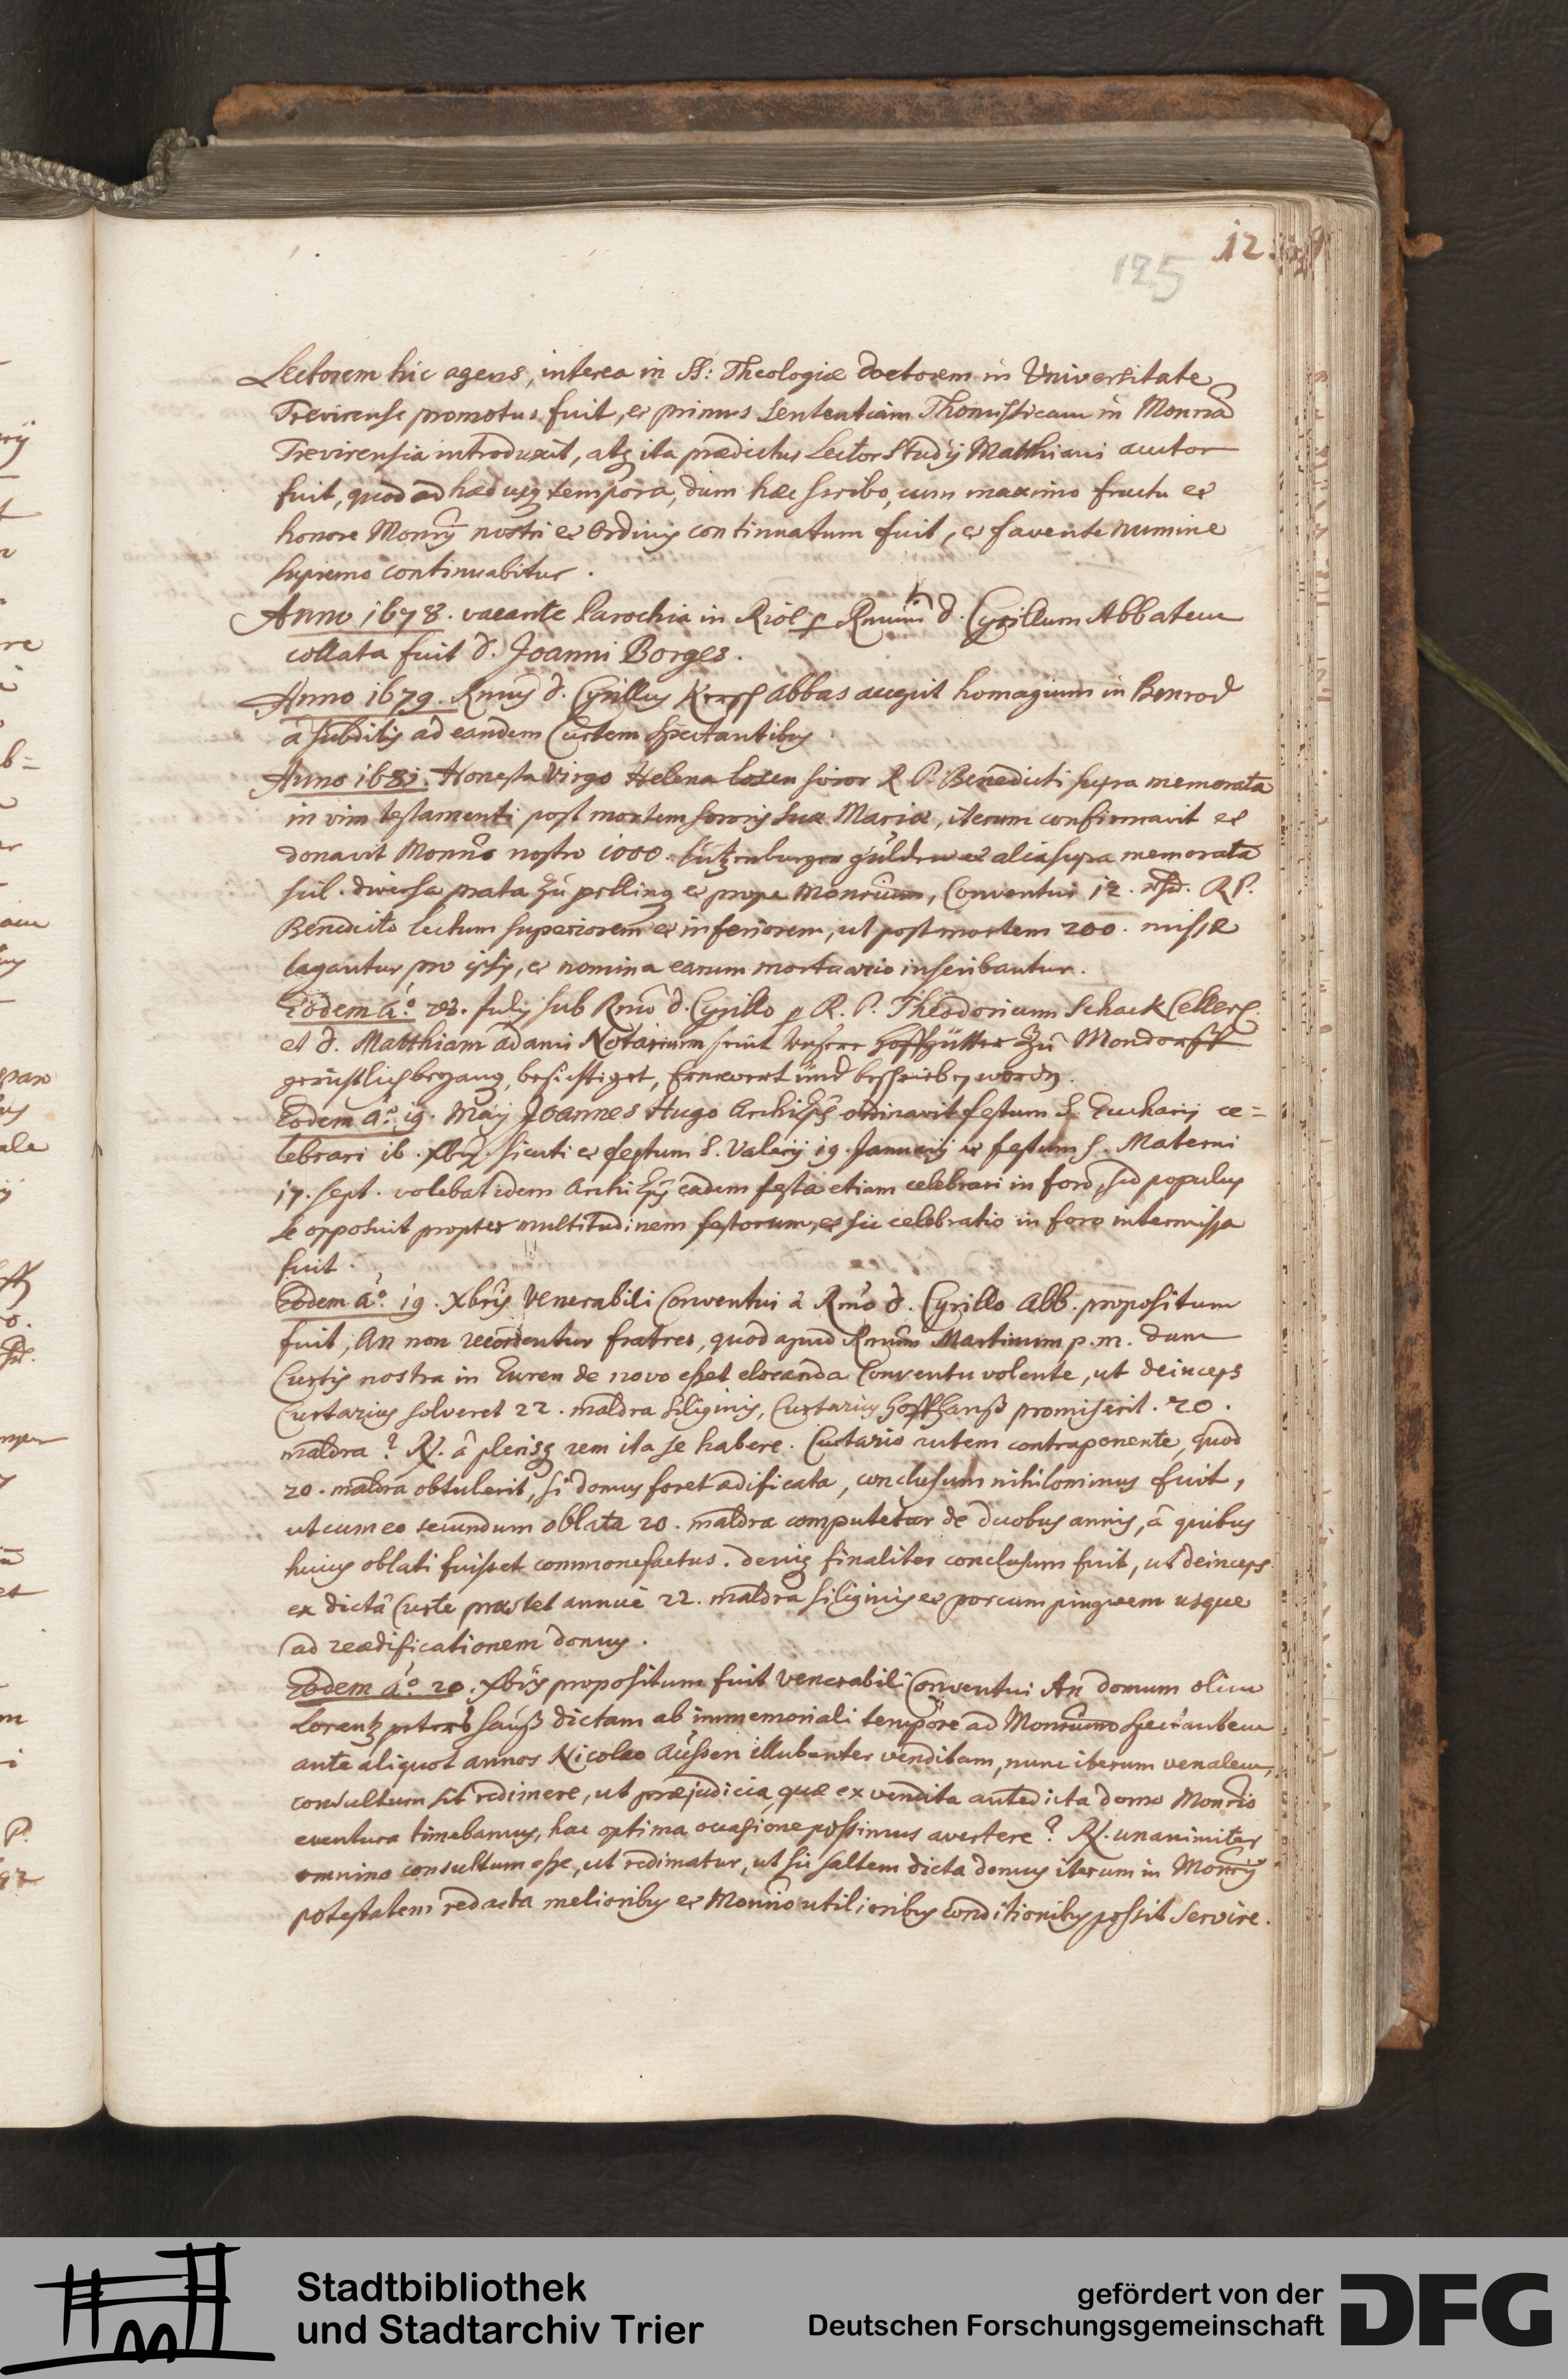 125
Lectorem hic agens, interea in SS: Theologiæ doctorem in Universitate
Trevirense promotus fuit, et primus sententiam Thomisticam in Monria
Trevirensia introduxit, atq ita prædictus Lector Studij Matthiani autor
fuit, quod ad hæc usq tempora, dum hæc scribo, cum maximo fructu et
honore Monrij nostri et Ordinis continuatum fuit, et favente numine
supremo continuabitur.
Anno 1678. vacante Parochia in Riol p Rmum d. Cyrillum Abbatem
collata fuit d. Joanni Borges.
Anno 1679. Rmus d. Cyrillus Kersch abbas accepit homagium in Benrod
à subditis ad eandem Curtem spectantibus
Anno 1681. Honesta Virgo Helena Losen soror R P. Benedicti supra memorata
in vim testamenti post mortem sororis suæ Mariæ, iterum confirmavit et
donavit Monrio nostro 1000. Lützenburger gülden et alia supra memorata
scil. diversa prata zu pelling et prope Monrium, Conventui 12. R P.
Benedicto lectum superiorem et inferiorem, ut post mortem 200. missæ
legantur pro ipsis, et nomina earum mortuario inscribantur.
Eodem aº. 28. July sub Rmo d. Cyrillo p R. P. Theodoricum SchackCeller.
et d. Matthiam adami Notarium seint unsere Hoffgütter zu Mondorff
gerüstlich begang, besichtiget, Ernewert und beschrieben worden.
Eodem aº. 19. Maij Joannes Hugo ArchiEps ordinavit festum S. Eucharij ce=
lebrari 16. Xbris. sicuti et festum S. Valerij 19. Januarij et festum S. Materni
17. Sept. volebat idem ArchiEps eadem festa etiam celebrari in foro, sed populus
se opposuit propter multitudinem festorum, et sic celebratio in foro intermissa
fuit.
Eodem aº. 19. Xbris Venerabili Conventui à Rmo d. Cyrillo Abb. propositum
fuit, An non recordentur fratres, quod apud Rmum Martinum p. m. dum
Curtis nostra in Euren de novo esset elocanda Conventu volente, ut deinceps
Curtarius solveret 22. maldra siliginis, Curtarius Hoffhanß promiserit. 20.
maldra? R. à plerisq rem ita se habere. Curtario autem contraponente, quod
20. maldra obtulerit, si domus foret ædificata, conclusum nihilominus fuit,
ut cum eo secundum oblata 20. maldra computetur de duobus annis, à quibus
huius oblati fuisset commonefactus. deniq finaliter conclusum fuit, ut deinceps
ex dictâ Curte præstet annuè 22. maldra siliginis et porcum pinguem usque
ad reædificationem domus.
Eodem aº. 20. Xbris propositum fuit venerabili Conventui An domum olim
Lorentz peters hauß dictam ab immemoriali tempore ad Monrium spectantem
ante aliquot annos Nicolao Aussen illubenter venditam, nunc iterum venalem,
consultum sit redimere, ut præjudicia, quæ ex vendita antedicta domo Monrio
eventura timebamus, hac optima occasione possimus avertere? R. unanimiter
omnino consultum esse, ut redimatur, ut sic saltem dicta domus iterum in Monrij
potestatem redacta melioribus et Monrio utilioribus conditionibus possit servire.
Stadtbibliothek
und Stadtarchiv Trier
gefördert von der
Deutschen Forschungsgemeinschaft
DFG